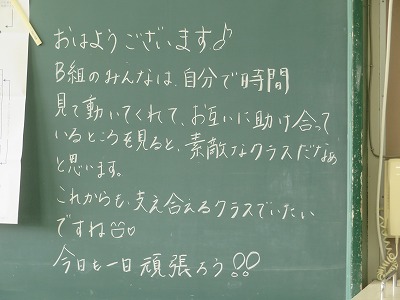 おはようございます♪
B組のみんなは、自分で時間
見て動いてくれて、お互いに助け合って
いるところを見ると、素敵なクラスだなぁ
と思います。
これからも、支え合えるクラスでいたい
ですね☺♡
今日も一日頑張ろう!!